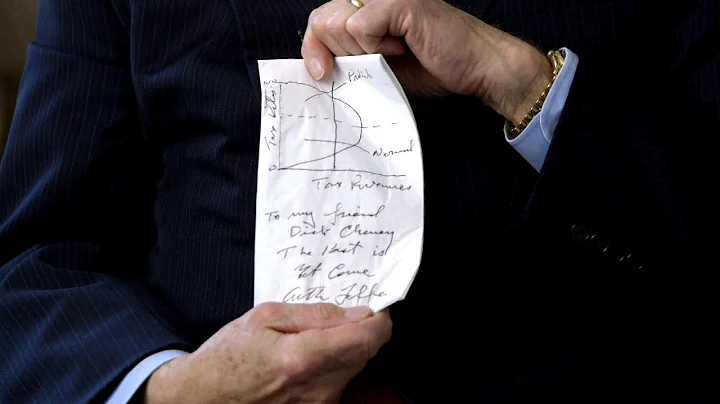 Tax Rates
Normal
Tax Revenues
To my friend
Dick Cheney
The Best is
Yet Come
Arth Laffer